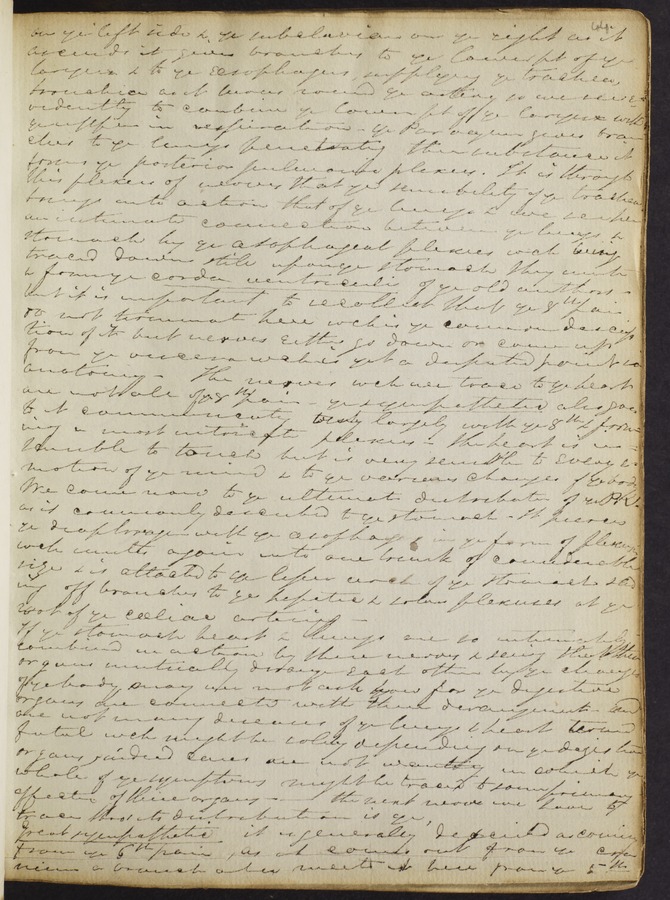 on ye left side & ye subclavian on ye right as it
ascends it gives branches to ye lower pt of ye
larynx & to ye Œsophagus, supplying ye trachea
as it round ye artery so we see
evidently to combine ye lower pt of ye larynx with
in respiration - ye Par vagum gives bran
ches to ye lungs penetrating their substance it
forms ye posterior pulmonic plexus. It is through
this plexus of nerves that ye sensibility of ye trachea
brings into action that of ye lungs & we see here
an intimate connection between ye lungs &
stomach by ye Œsophageal plexus wch being
traced down still upon ye stomach they unite
& form ye corda ventriculi of ye old authors -
but it is important to recollect that ye 8th pair
do not terminate here wch is ye common descrip
tion of it but nerves either go down or come up
from ye viscera which is yet a disputed point in
anatomy - The nerves wch we trace to ye heart
are not all of ye 8th pair - ye sympathetic also goes
to it communicating very largely with ye 8th & form-
ing a most intricate plexus - The heart is in-
sensible to touch but is very sensible to every
motion of ye mind & to ye various changes of ye body
We come now to ye ultimate distribution of ye
as is commonly described to ye stomach - It pierces
ye diaphragm with ye œsophagus in ye form of plexus
wch unites again into one trunk of considerable
size & is attached to ye lesser arch of ye stomach send
ing off branches to ye hepatic & solar plexuses at ye
root of ye cœliac artery -
If ye stomach heart & lungs are so intimately
combined in action by these nerves & seeing that these
organs mutually derange each other by ye changes
of ye body may we not ask how far ye digestive
organs are connected with their derangement and
are not many diseases of ye lungs & heart termed
fatal wch might be solely depending on ye digestive
organs, indeed cases are not wanting in which ye
whole of ye symptoms might be traced to some primary
affection of these organs - The next nerve we have to
trace thro its distribution is ye,
Great sympathetic it is generally described as coming
from ye 6th pair, as it comes out from ye
a branch also meets it here from ye 5th